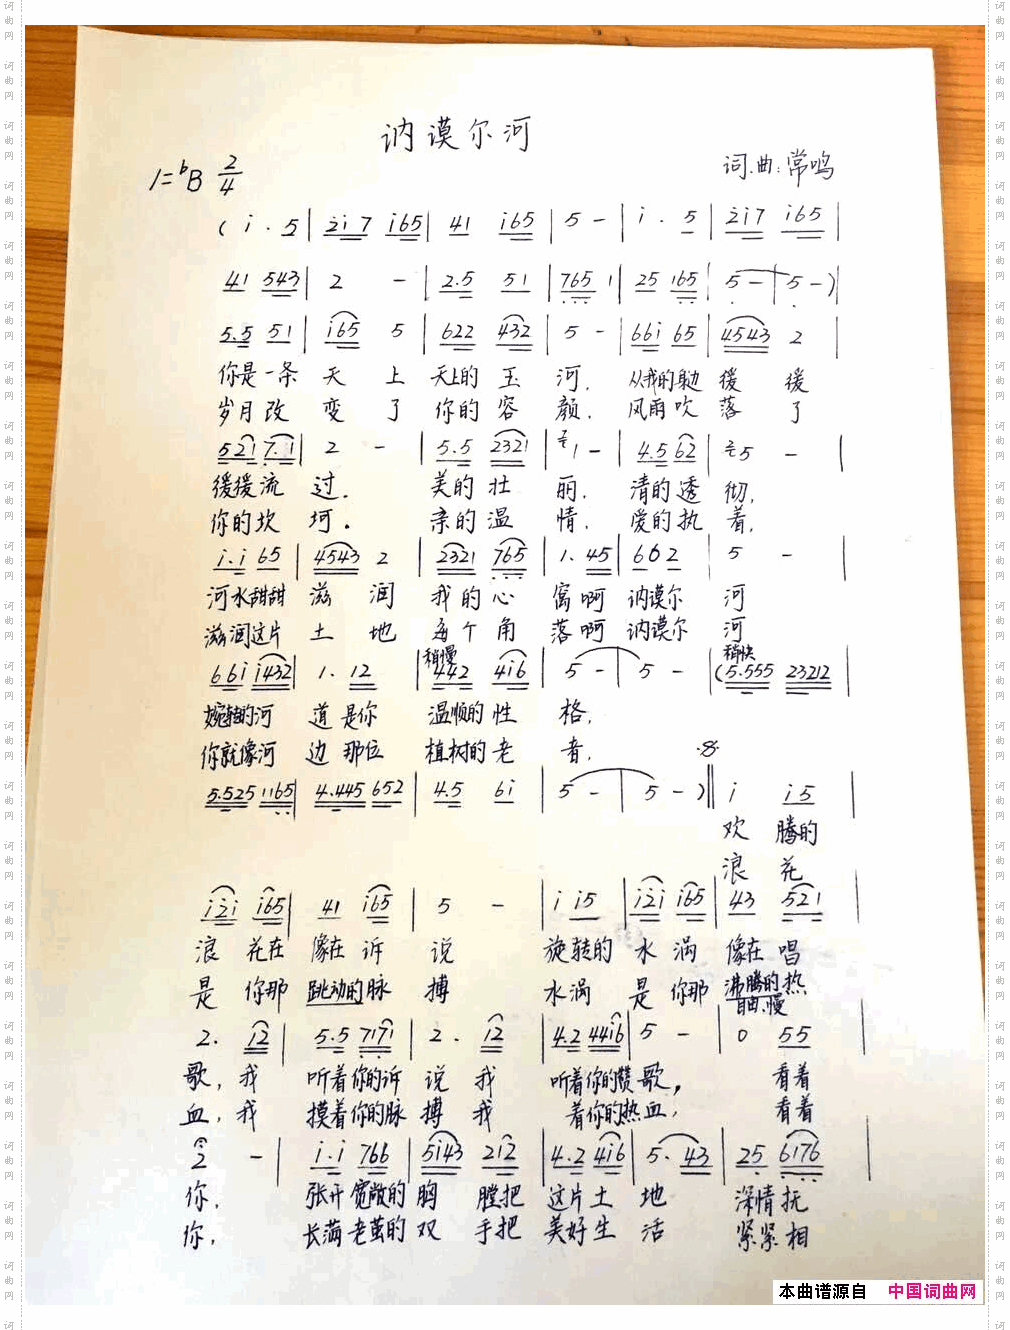 讷谟尔河
词.曲:常鸣
1=ᵇB 2/4
( i · 5 | 2i 7 i65 | 41 i65 | 5 - | i · 5 | 2i7 i65 |
41 543 | 2 - | 2.5 51 | 765 1 | 25 165 | 5 - | 5 - )
5.5 51 | i65 5 | 622 432 | 5 - | 66i 65 | 4543 2
你是一条 天 上 天上的 玉 河. 从我的身边 缓 缓
岁月改 变 了 你的容 颜. 风雨吹 落 了
521 7.1 | 2 - | 5.5 2321 | 1 - | 4.5 62 | 5 -
缓缓流 过. 美的壮 丽. 清的透 彻.
你的坎 坷. 亲的温 情. 爱的执 着.
i.i 65 | 4543 2 | 2321 765 | 1. 45 | 602 | 5 -
河水甜甜 滋 润 我的心 窝啊 讷谟尔 河
滋润这片 土 地 每个角 落啊 讷谟尔 河
稍慢 稍快
66i i432 | 1. 12 | 442 4i6 | 5 - | 5 - | (5.555 23212
婉转的河 道是你 温顺的性 格.
你就像河 边那位 植树的老 者.
5.525 1165 | 4.445 652 | 4.5 6i | 5 - | 5 - ) || i i5
欢 腾的
浪 花
i2i i65 | 41 i65 | 5 - | i i5 | i2i i65 | 43 521
浪 花在 像在诉 说 旋转的 水 涡 像在唱
是 你那 跳动的脉 搏 水涡 是 你那 沸腾的热
自由.慢
2. 12 | 5.5 7171 | 2. 12 | 4.2 44i6 | 5 - | 0 55
歌, 我 听着你的诉 说 我 听着你的赞歌, 看着
血, 我 摸着你的脉 搏 我 着你的热血, 看着
2 - | i.i 766 | 5i43 2i2 | 4.2 4i6 | 5. 43 | 25 6176
你, 张开宽敞的 胸 膛把 这片土 地 深情抚
你, 长满老茧的 双 手把 美好生 活 紧紧相
本曲谱源自 中国词曲网